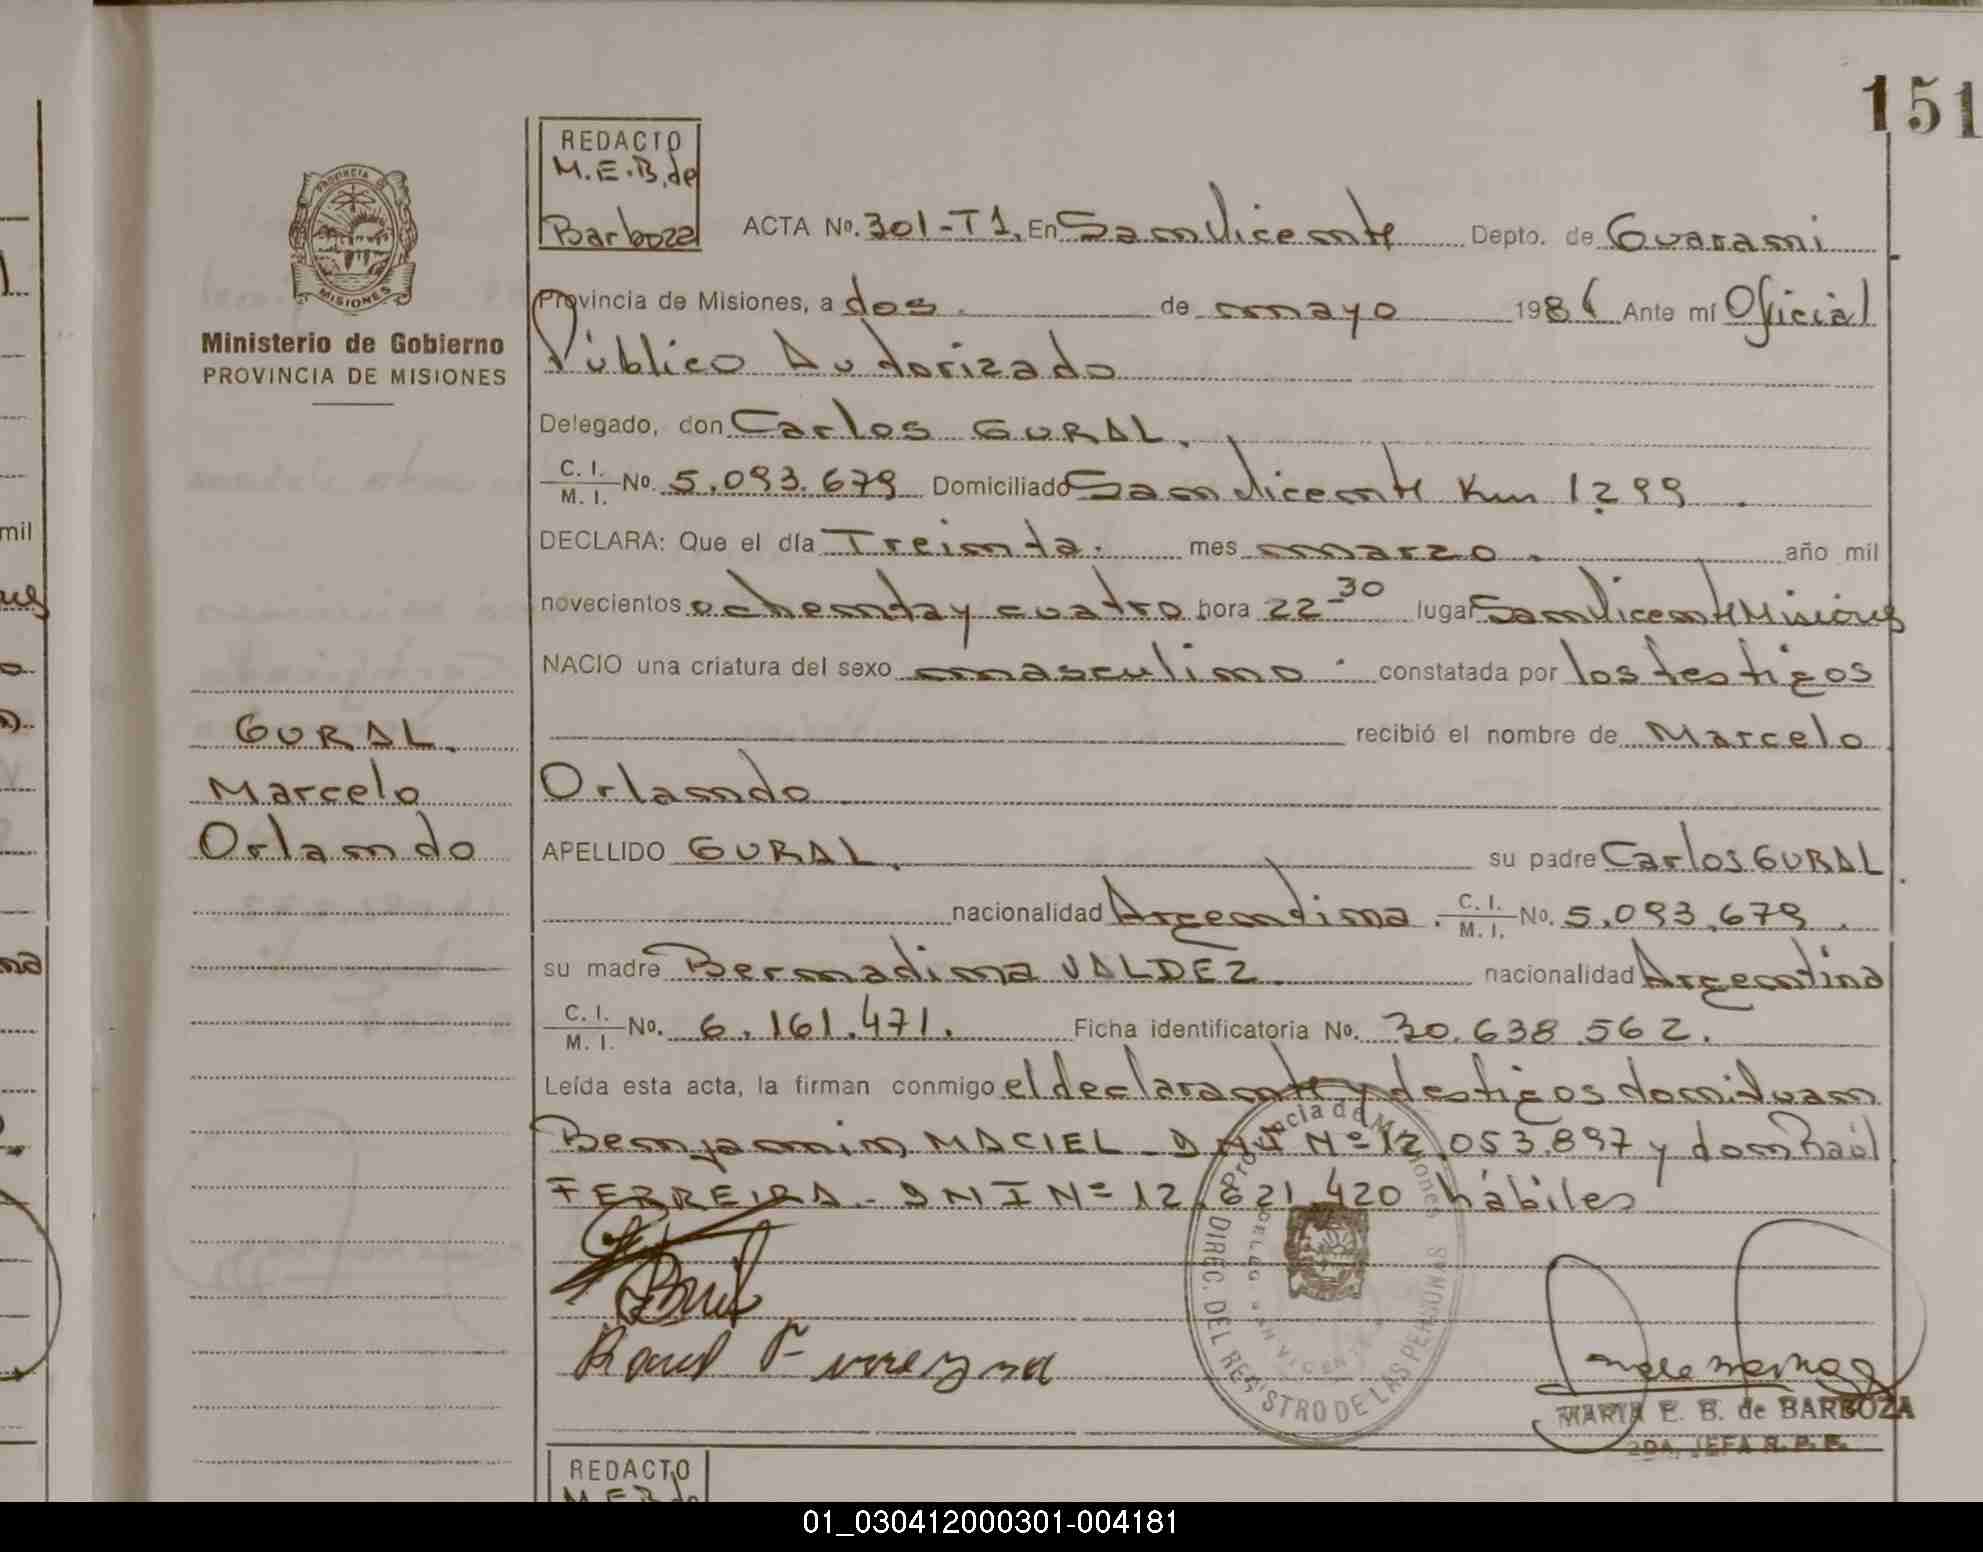 151
REDACTO
M.E.B. de
Barboza
PROVINCIA DE
MISIONES
Ministerio de Gobierno
PROVINCIA DE MISIONES
ACTA No. 301-T1. En San Vicente Depto. de Guarani
Provincia de Misiones, a dos. de mayo 198 Ante mí Oficial
Público Autorizado
Delegado, don Carlos GURAL.
C. I. / M. I. No. 5.093.679 Domiciliado San Vicente Km 1299.
DECLARA: Que el día Treinta. mes marzo. año mil
novecientos ochenta y cuatro hora 22-30 lugar San Vicente Misiones
NACIO una criatura del sexo masculino. constatada por los testigos
recibió el nombre de Marcelo
Orlando
APELLIDO GURAL. su padre Carlos GURAL
nacionalidad Argentina. C. I. / M. I. No. 5.093.679.
su madre Bernadina VALDEZ. nacionalidad Argentina
C. I. / M. I. No. 6.161.471. Ficha identificatoria No. 30.638.562.
Leída esta acta, la firman conmigo el declarante y testigos don Juan
Benjamin MACIEL - DNI Nº 12.053.897 y don Raúl
FERREIRA - DNI Nº 12.621.420 hábiles
GURAL.
Marcelo
Orlando
Provincia de Misiones
DIREC. DEL REGISTRO DE LAS PERSONAS
MARIA E. B. de BARBOZA
2DA. JEFA R. P. P.
REDACTO
M.E.B. de
mil
01_030412000301-004181